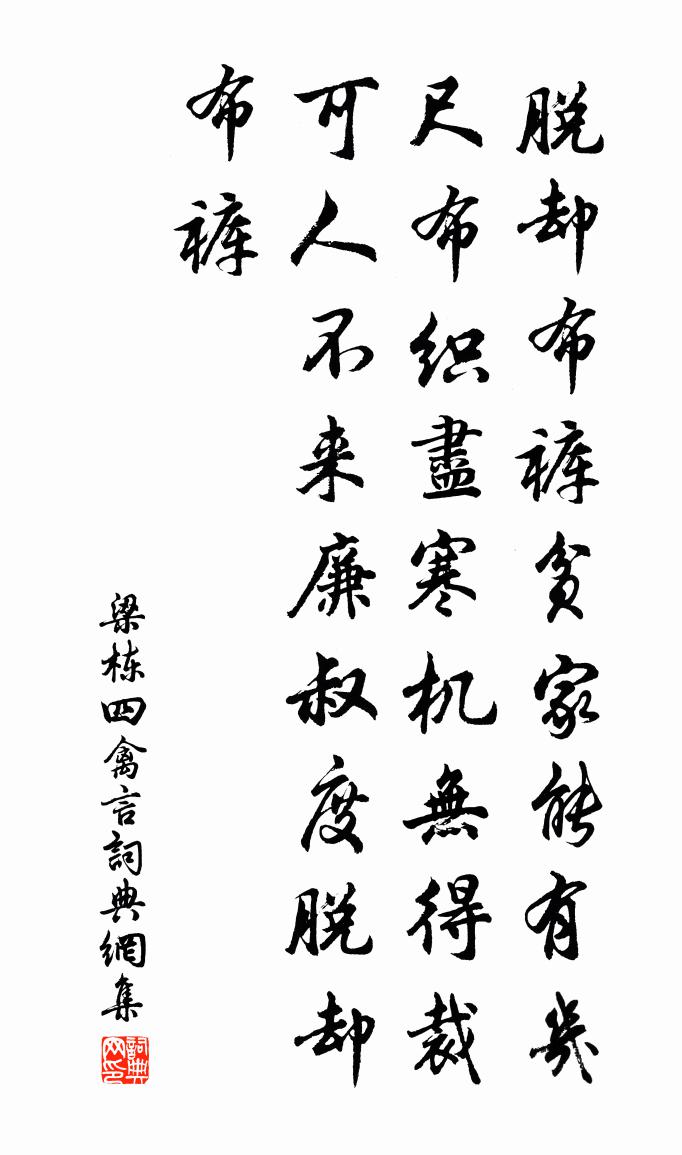 脱却布裤贫家能有幾
尺布織盡寒机無得裁
可人不来廉叔度脱却
布裤
梁栋四禽言詞典網集
詞典
网印